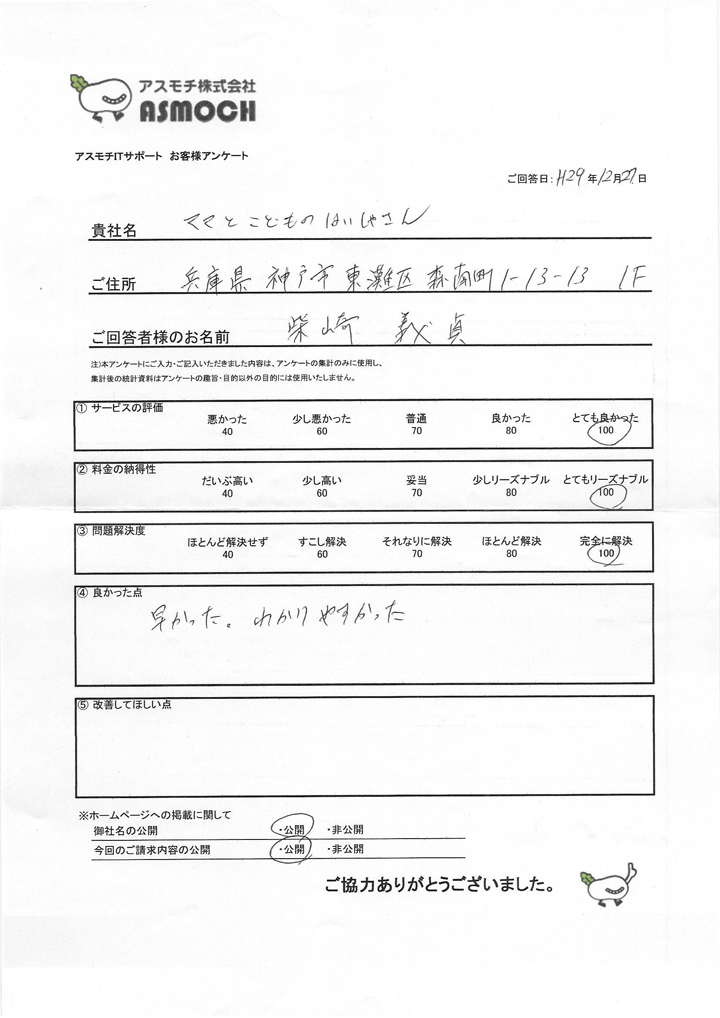 アスモチ株式会社
ASMOCH
アスモチITサポート お客様アンケート
ご回答日: H29年12月27日
貴社名 ママとこどものはいしゃさん
ご住所 兵庫県 神戸市 東灘区 森南町1-13-13 1F
ご回答者様のお名前 柴崎 義貞
注)本アンケートにご入力・ご記入いただきました内容は、アンケートの集計のみに使用し、
集計後の統計資料はアンケートの趣旨・目的以外の目的には使用いたしません。
① サービスの評価
悪かった 少し悪かった 普通 良かった とても良かった
40 60 70 80 100
② 料金の納得性
だいぶ高い 少し高い 妥当 少しリーズナブル とてもリーズナブル
40 60 70 80 100
③ 問題解決度
ほとんど解決せず すこし解決 それなりに解決 ほとんど解決 完全に解決
40 60 70 80 100
④ 良かった点
早かった。わかりやすかった
⑤ 改善してほしい点
※ホームページへの掲載に関して
御社名の公開 ・公開 ・非公開
今回のご請求内容の公開 ・公開 ・非公開
ご協力ありがとうございました。